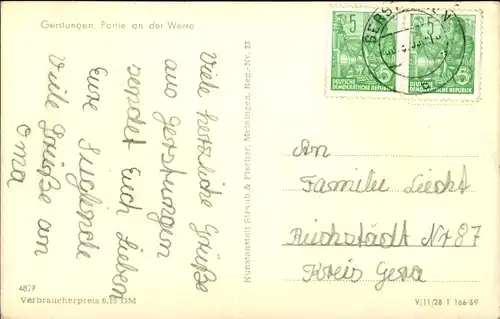 Gerstungen, Partie an der Werra
5
5
DEUTSCHE
DEMOKRATISCHE REPUBLIK
DEUTSCHE
DEMOKRATISCHE REPUBLIK
Viele herzliche Grüße
aus Gerstungen
sendet Euch Lieben
Eure
Viele Grüße an
Oma
Kunstanstalt Straub & Fischer, Meiningen, Reg.-Nr. 23
An
Familie Liecht
Reichstädt Nr 87
Kreis Gera
4827
Verbraucherpreis 0,15 DM
V/11/28 T 166/59